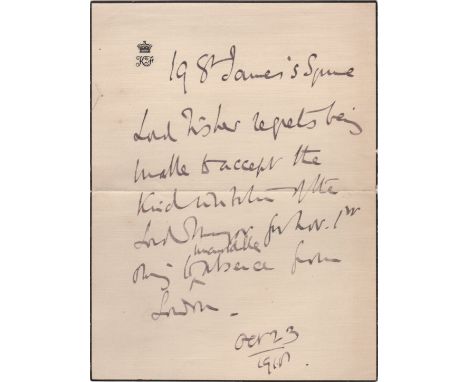 19 St James's Square
Lord Fisher regrets being
unable to accept the
Kind invitation of the
Lord Mayor for Nov. 1st
owing to unavoidable absence from
London.
Oct 23